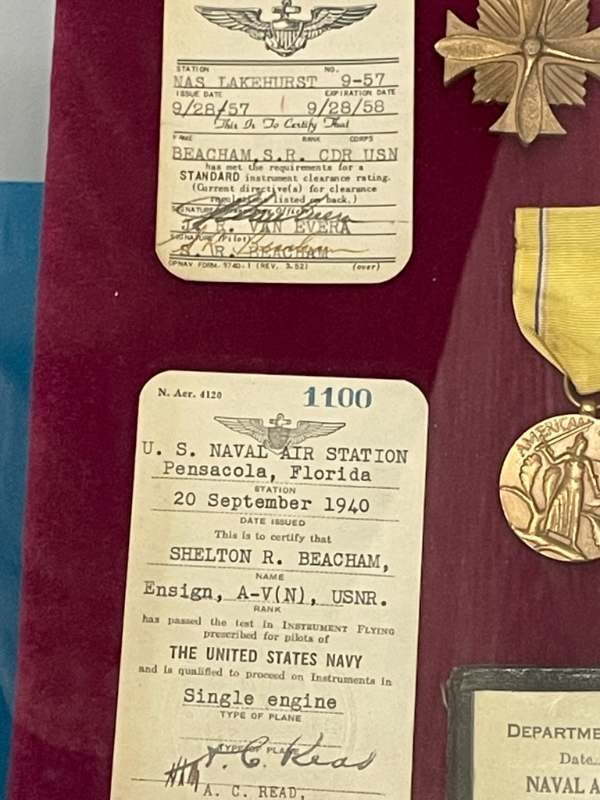 STATION NO.
NAS LAKEHURST 9-57
ISSUE DATE EXPIRATION DATE
9/28/57 9/28/58
This Is To Certify That
NAME RANK CORPS
BEACHAM, S.R. CDR USN
has met the requirements for a
STANDARD instrument clearance rating.
(Current directive(s) for clearance
listed on back.)
SIGNATURE
R. VAN EVERA
SIGNATURE (Pilot)
S. R. BEACHAM
OPNAV FORM 3740-1 (REV. 3-52) (over)
N. Aer. 4120 1100
U. S. NAVAL AIR STATION
Pensacola, Florida
STATION
20 September 1940
DATE ISSUED
This is to certify that
SHELTON R. BEACHAM,
NAME
Ensign, A-V(N), USNR.
RANK
has passed the test in INSTRUMENT FLYING
prescribed for pilots of
THE UNITED STATES NAVY
and is qualified to proceed on Instruments in
Single engine
TYPE OF PLANE
TYPE OF PLANE
A. C. Read
A. C. READ,
AMERICAN
DEPARTMEN
Date
NAVAL A